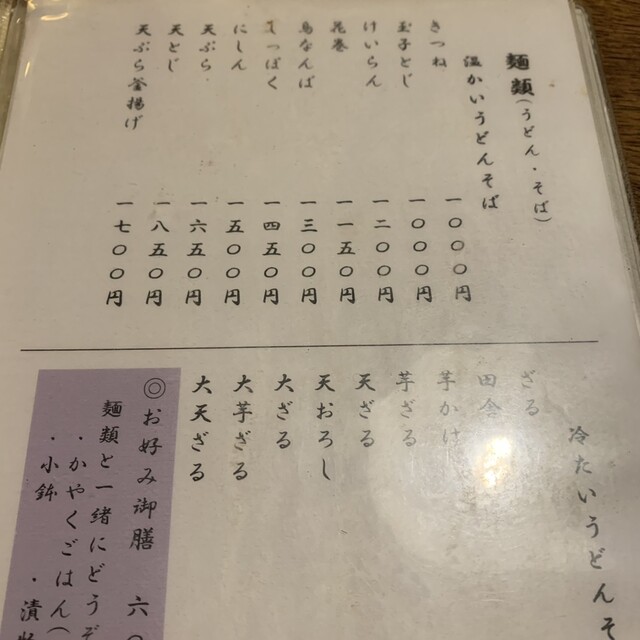 麺類(うどん・そば)
温かいうどんそば
きつね 一〇〇〇円
玉子とじ 一〇〇〇円
けいらん 一二〇〇円
花巻 一一五〇円
鳥なんば 一三〇〇円
しっぽく 一四五〇円
にしん 一五〇〇円
天ぷら 一六五〇円
天とじ 一八五〇円
天ぷら釜揚げ 一七〇〇円
冷たいうどんそ
ざる
田舎
芋かけ
芋ざる
天ざる
天おろし
大ざる
大芋ざる
大天ざる
◎お好み御膳 六〇
麺類と一緒にどうぞ
・かやくごはん(
・小鉢 ・漬